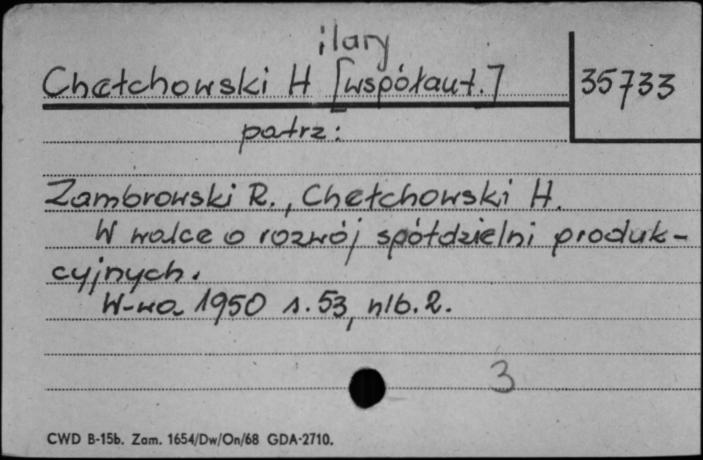 ilary
Chełchowski H [współaut.] 35733
patrz:
Zambrowski R., Chełchowski H.
W walce o rozwój spółdzielni produk-
cyjnych.
W-wa 1950 s. 53, nlb. 2.
3
CWD B-15b. Zam. 1654/Dw/On/68 GDA-2710.